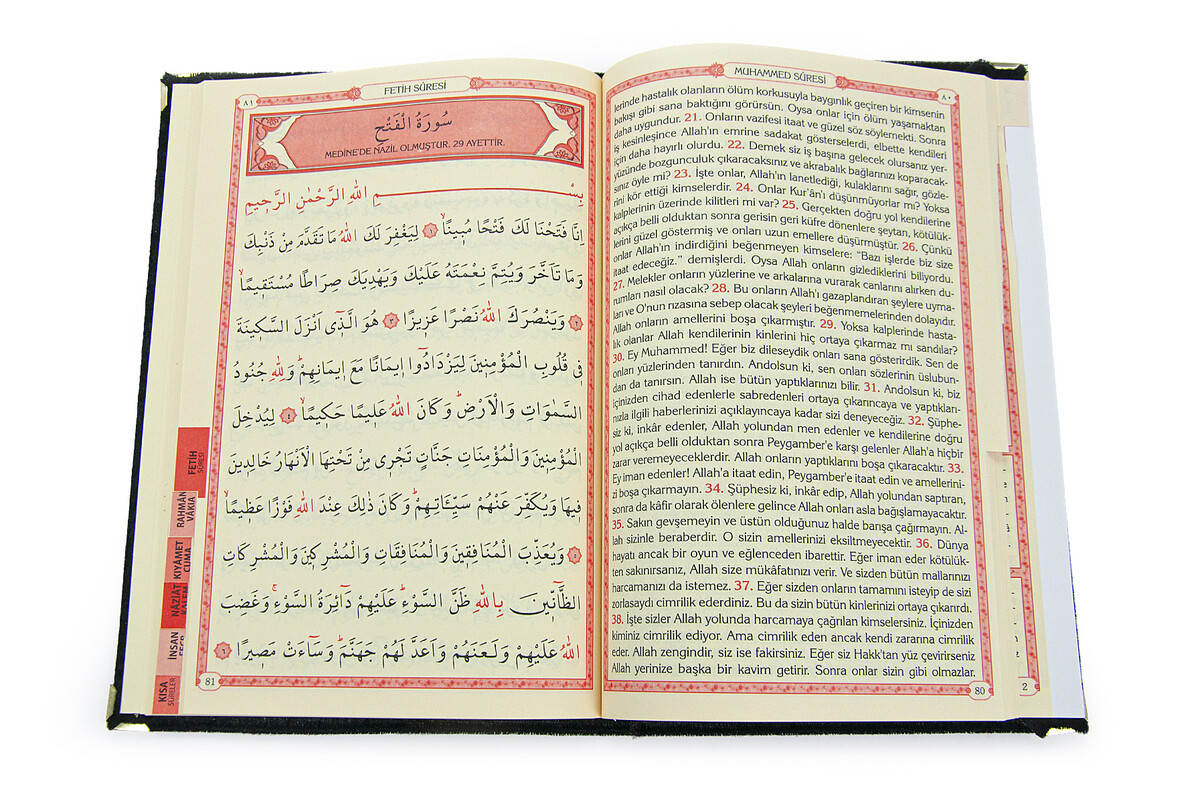 MUHAMMED SÛRESİ
٨٠
lerinde hastalık olanların ölüm korkusuyla baygınlık geçiren bir kimsenin
bakışı gibi sana baktığını görürsün. Oysa onlar için ölüm yaşamaktan
daha uygundur. 21. Onların vazifesi itaat ve güzel söz söylemekti. Sonra
iş kesinleşince Allah'ın emrine sadakat gösterselerdi, elbette kendileri
için daha hayırlı olurdu. 22. Demek siz iş başına gelecek olursanız yer-
yüzünde bozgunculuk çıkaracaksınız ve akrabalık bağlarınızı koparacak-
sınız öyle mi? 23. İşte onlar, Allah'ın lanetlediği, kulaklarını sağır, gözle-
rini kör ettiği kimselerdir. 24. Onlar Kur'ân'ı düşünmüyorlar mı? Yoksa
kalplerinin üzerinde kilitleri mi var? 25. Gerçekten doğru yol kendilerine
açıkça belli olduktan sonra gerisin geri küfre dönenlere şeytan, kötülük-
lerini güzel göstermiş ve onları uzun emellere düşürmüştür. 26. Çünkü
onlar Allah'ın indirdiğini beğenmeyen kimselere: "Bazı işlerde biz size
itaat edeceğiz." demişlerdi. Oysa Allah onların gizlediklerini biliyordu.
27. Melekler onların yüzlerine ve arkalarına vurarak canlarını alırken du-
rumları nasıl olacak? 28. Bu onların Allah'ı gazaplandıran şeylere uyma-
ları ve O'nun rızasına sebep olacak şeyleri beğenmemelerinden dolayıdır.
Allah onların amellerini boşa çıkarmıştır. 29. Yoksa kalplerinde hasta-
lık olanlar Allah kendilerinin kinlerini hiç ortaya çıkarmaz mı sandılar?
30. Ey Muhammed! Eğer biz dileseydik onları sana gösterirdik. Sen de
onları yüzlerinden tanırdın. Andolsun ki, sen onları sözlerinin üslubun-
dan da tanırsın. Allah ise bütün yaptıklarınızı bilir. 31. Andolsun ki, biz
içinizden cihad edenlerle sabredenleri ortaya çıkarıncaya ve yaptıkları-
nızla ilgili haberlerinizi açıklayıncaya kadar sizi deneyeceğiz. 32. Şüphe-
siz ki, inkâr edenler, Allah yolundan men edenler ve kendilerine doğru
yol açıkça belli olduktan sonra Peygamber'e karşı gelenler Allah'a hiçbir
zarar veremeyeceklerdir. Allah onların yaptıklarını boşa çıkaracaktır. 33.
Ey iman edenler! Allah'a itaat edin, Peygamber'e itaat edin ve amellerini-
zi boşa çıkarmayın. 34. Şüphesiz ki, inkâr edip, Allah yolundan saptıran,
sonra da kâfir olarak ölenlere gelince Allah onları asla bağışlamayacaktır.
35. Sakın gevşemeyin ve üstün olduğunuz halde barışa çağırmayın. Al-
lah sizinle beraberdir. O sizin amellerinizi eksiltmeyecektir. 36. Dünya
hayatı ancak bir oyun ve eğlenceden ibarettir. Eğer iman eder kötülük-
ten sakınırsanız, Allah size mükâfatınızı verir. Ve sizden bütün mallarınızı
harcamanızı da istemez. 37. Eğer sizden onların tamamını isteyip de sizi
zorlasaydı cimrilik ederdiniz. Bu da sizin bütün kinlerinizi ortaya çıkarırdı.
38. İşte sizler Allah yolunda harcamaya çağrılan kimselersiniz. İçinizden
kiminiz cimrilik ediyor. Ama cimrilik eden ancak kendi zararına cimrilik
eder. Allah zengindir, siz ise fakirsiniz. Eğer siz Hakk'tan yüz çevirirseniz
Allah yerinize başka bir kavim getirir. Sonra onlar sizin gibi olmazlar.
80
2
FETİH SÛRESİ
٨١
سُورَةُ الْفَتْحِ
MEDİNE'DE NAZİL OLMUŞTUR. 29 AYETTİR.
بِسْمِ اللهِ الرَّحْمٰنِ الرَّحٖيمِ
اِنَّا فَتَحْنَا لَكَ فَتْحًا مُبٖينًاۙ ﴿١﴾ لِيَغْفِرَ لَكَ اللهُ مَا تَقَدَّمَ مِنْ ذَنْبِكَ
وَمَا تَاَخَّرَ وَيُتِمَّ نِعْمَتَهُ عَلَيْكَ وَيَهْدِيَكَ صِرَاطًا مُسْتَقٖيمًاۙ
﴿٢﴾ وَيَنْصُرَكَ اللهُ نَصْرًا عَزٖيزًا ﴿٣﴾ هُوَ الَّذٖٓى اَنْزَلَ السَّكٖينَةَ
فٖى قُلُوبِ الْمُؤْمِنٖينَ لِيَزْدَادُٓوا اٖيمَانًا مَعَ اٖيمَانِهِمْۜ وَلِلهِ جُنُودُ
السَّمٰوَاتِ وَالْاَرْضِۜ وَكَانَ اللهُ عَلٖيمًا حَكٖيمًاۙ ﴿٤﴾ لِيُدْخِلَ
الْمُؤْمِنٖينَ وَالْمُؤْمِنَاتِ جَنَّاتٍ تَجْرٖى مِنْ تَحْتِهَا الْاَنْهَارُ خَالِدٖينَ
فٖيهَا وَيُكَفِّرَ عَنْهُمْ سَيِّـَٔاتِهِمْۜ وَكَانَ ذٰلِكَ عِنْدَ اللهِ فَوْزًا عَظٖيمًاۙ
﴿٥﴾ وَيُعَذِّبَ الْمُنَافِقٖينَ وَالْمُنَافِقَاتِ وَالْمُشْرِكٖينَ وَالْمُشْرِكَاتِ
الظَّٓانّٖينَ بِاللهِ ظَنَّ السَّوْءِۜ عَلَيْهِمْ دَٓائِرَةُ السَّوْءِۚ وَغَضِبَ
اللهُ عَلَيْهِمْ وَلَعَنَهُمْ وَاَعَدَّ لَهُمْ جَهَنَّمَۜ وَسَٓاءَتْ مَصٖيرًا ﴿٦﴾
81
FETİH
SÛRESİ
RAHMÂN
VÂKIA
KIYÂMET
CUMA
NÂZİÂT
İNSAN
KISA
SÛRELER